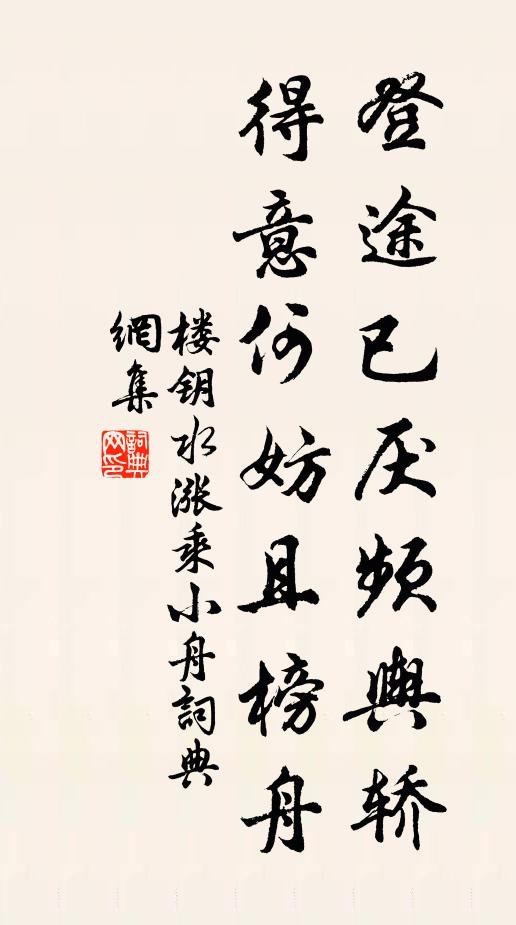 登途已厌頻輿轿
得意何妨且榜舟
楼钥水涨乘小舟詞典
網集
詞典网印